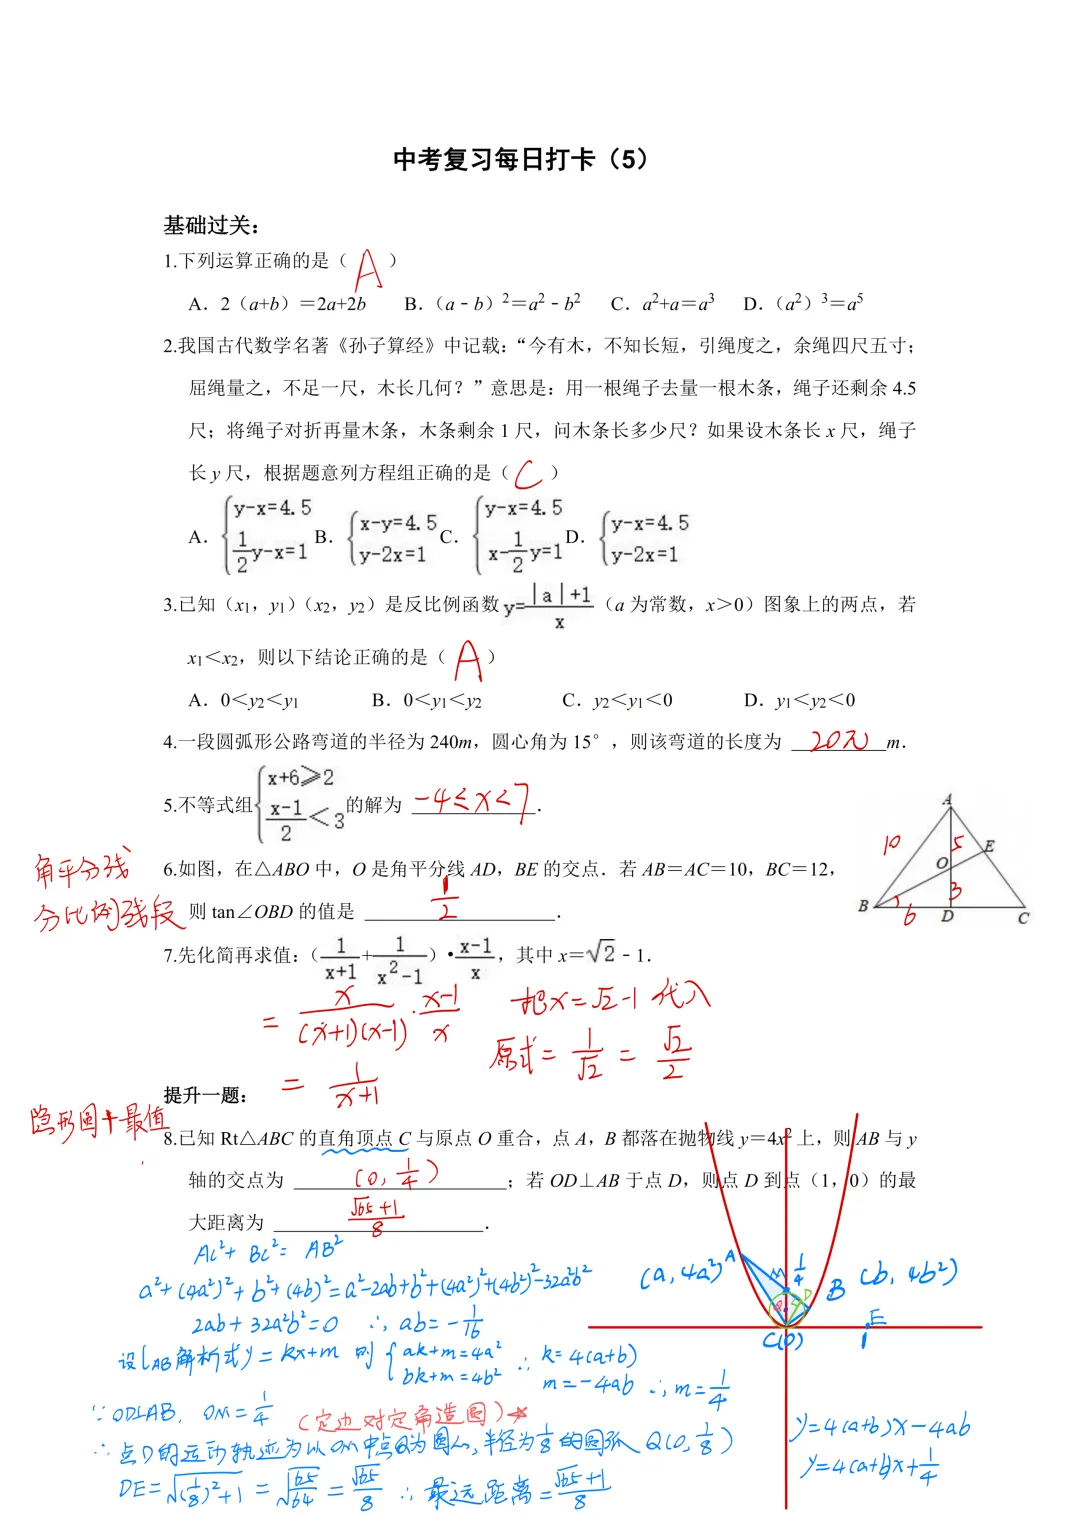 中考复习每日打卡（5）
基础过关：
1.下列运算正确的是（ A ）
A．2（a+b）＝2a+2b B．（a﹣b）²＝a²﹣b² C．a²+a＝a³ D．（a²）³＝a⁵
2.我国古代数学名著《孙子算经》中记载：“今有木，不知长短，引绳度之，余绳四尺五寸；
屈绳量之，不足一尺，木长几何？”意思是：用一根绳子去量一根木条，绳子还剩余 4.5
尺；将绳子对折再量木条，木条剩余 1 尺，问木条长多少尺？如果设木条长 x 尺，绳子
长 y 尺，根据题意列方程组正确的是（ C ）
A．{y-x=4.5 1/2y-x=1 B．{x-y=4.5 y-2x=1 C．{y-x=4.5 x-1/2y=1 D．{y-x=4.5 y-2x=1
3.已知（x₁，y₁）（x₂，y₂）是反比例函数 y=|a|+1/x（a 为常数，x＞0）图象上的两点，若
x₁＜x₂，则以下结论正确的是（ A ）
A．0＜y₂＜y₁ B．0＜y₁＜y₂ C．y₂＜y₁＜0 D．y₁＜y₂＜0
4.一段圆弧形公路弯道的半径为 240m，圆心角为 15°，则该弯道的长度为 20π m．
5.不等式组{x+6≥2 x-1/2＜3 的解为 -4≤x<7．
角平分线
分比例线段
6.如图，在△ABO 中，O 是角平分线 AD，BE 的交点．若 AB＝AC＝10，BC＝12，
则 tan∠OBD 的值是 1/2．
A
10 5 E
O
3
B 6 D C
7.先化简再求值：（1/x+1+1/x²-1）•x-1/x，其中 x＝√2﹣1．
= x/(x+1)(x-1)·x-1/x 把x=√2-1代入
原式=1/√2=√2/2
= 1/x+1
提升一题：
隐形圆+最值
8.已知 Rt△ABC 的直角顶点 C 与原点 O 重合，点 A，B 都落在抛物线 y＝4x² 上，则 AB 与 y
轴的交点为 (0,1/4)；若 OD⊥AB 于点 D，则点 D 到点（1，0）的最
大距离为 √65+1/8．
AC²+BC²=AB²
a²+(4a²)²+b²+(4b)²=a²-2ab+b²+(4a²)²+(4b²)²-32a²b²
2ab+32a²b²=0 ∴ab=-1/16
设lAB解析式y=kx+m 则{ak+m=4a² bk+m=4b² ∴k=4(a+b) m=-4ab ∴m=1/4
∵OD⊥AB，OM=1/4 (定边对定角造圆)
∴点D的运动轨迹为以OM中点Q为圆心，半径为1/8的圆弧 Q(0,1/8)
DE=√(1/8)²+1=√65/64=√65/8 ∴最远距离=√65+1/8
(a,4a²) A M 1/4 B (b,4b²)
Q D
E
C(O) 1
y=4(a+b)x-4ab
y=4(a+b)x+1/4